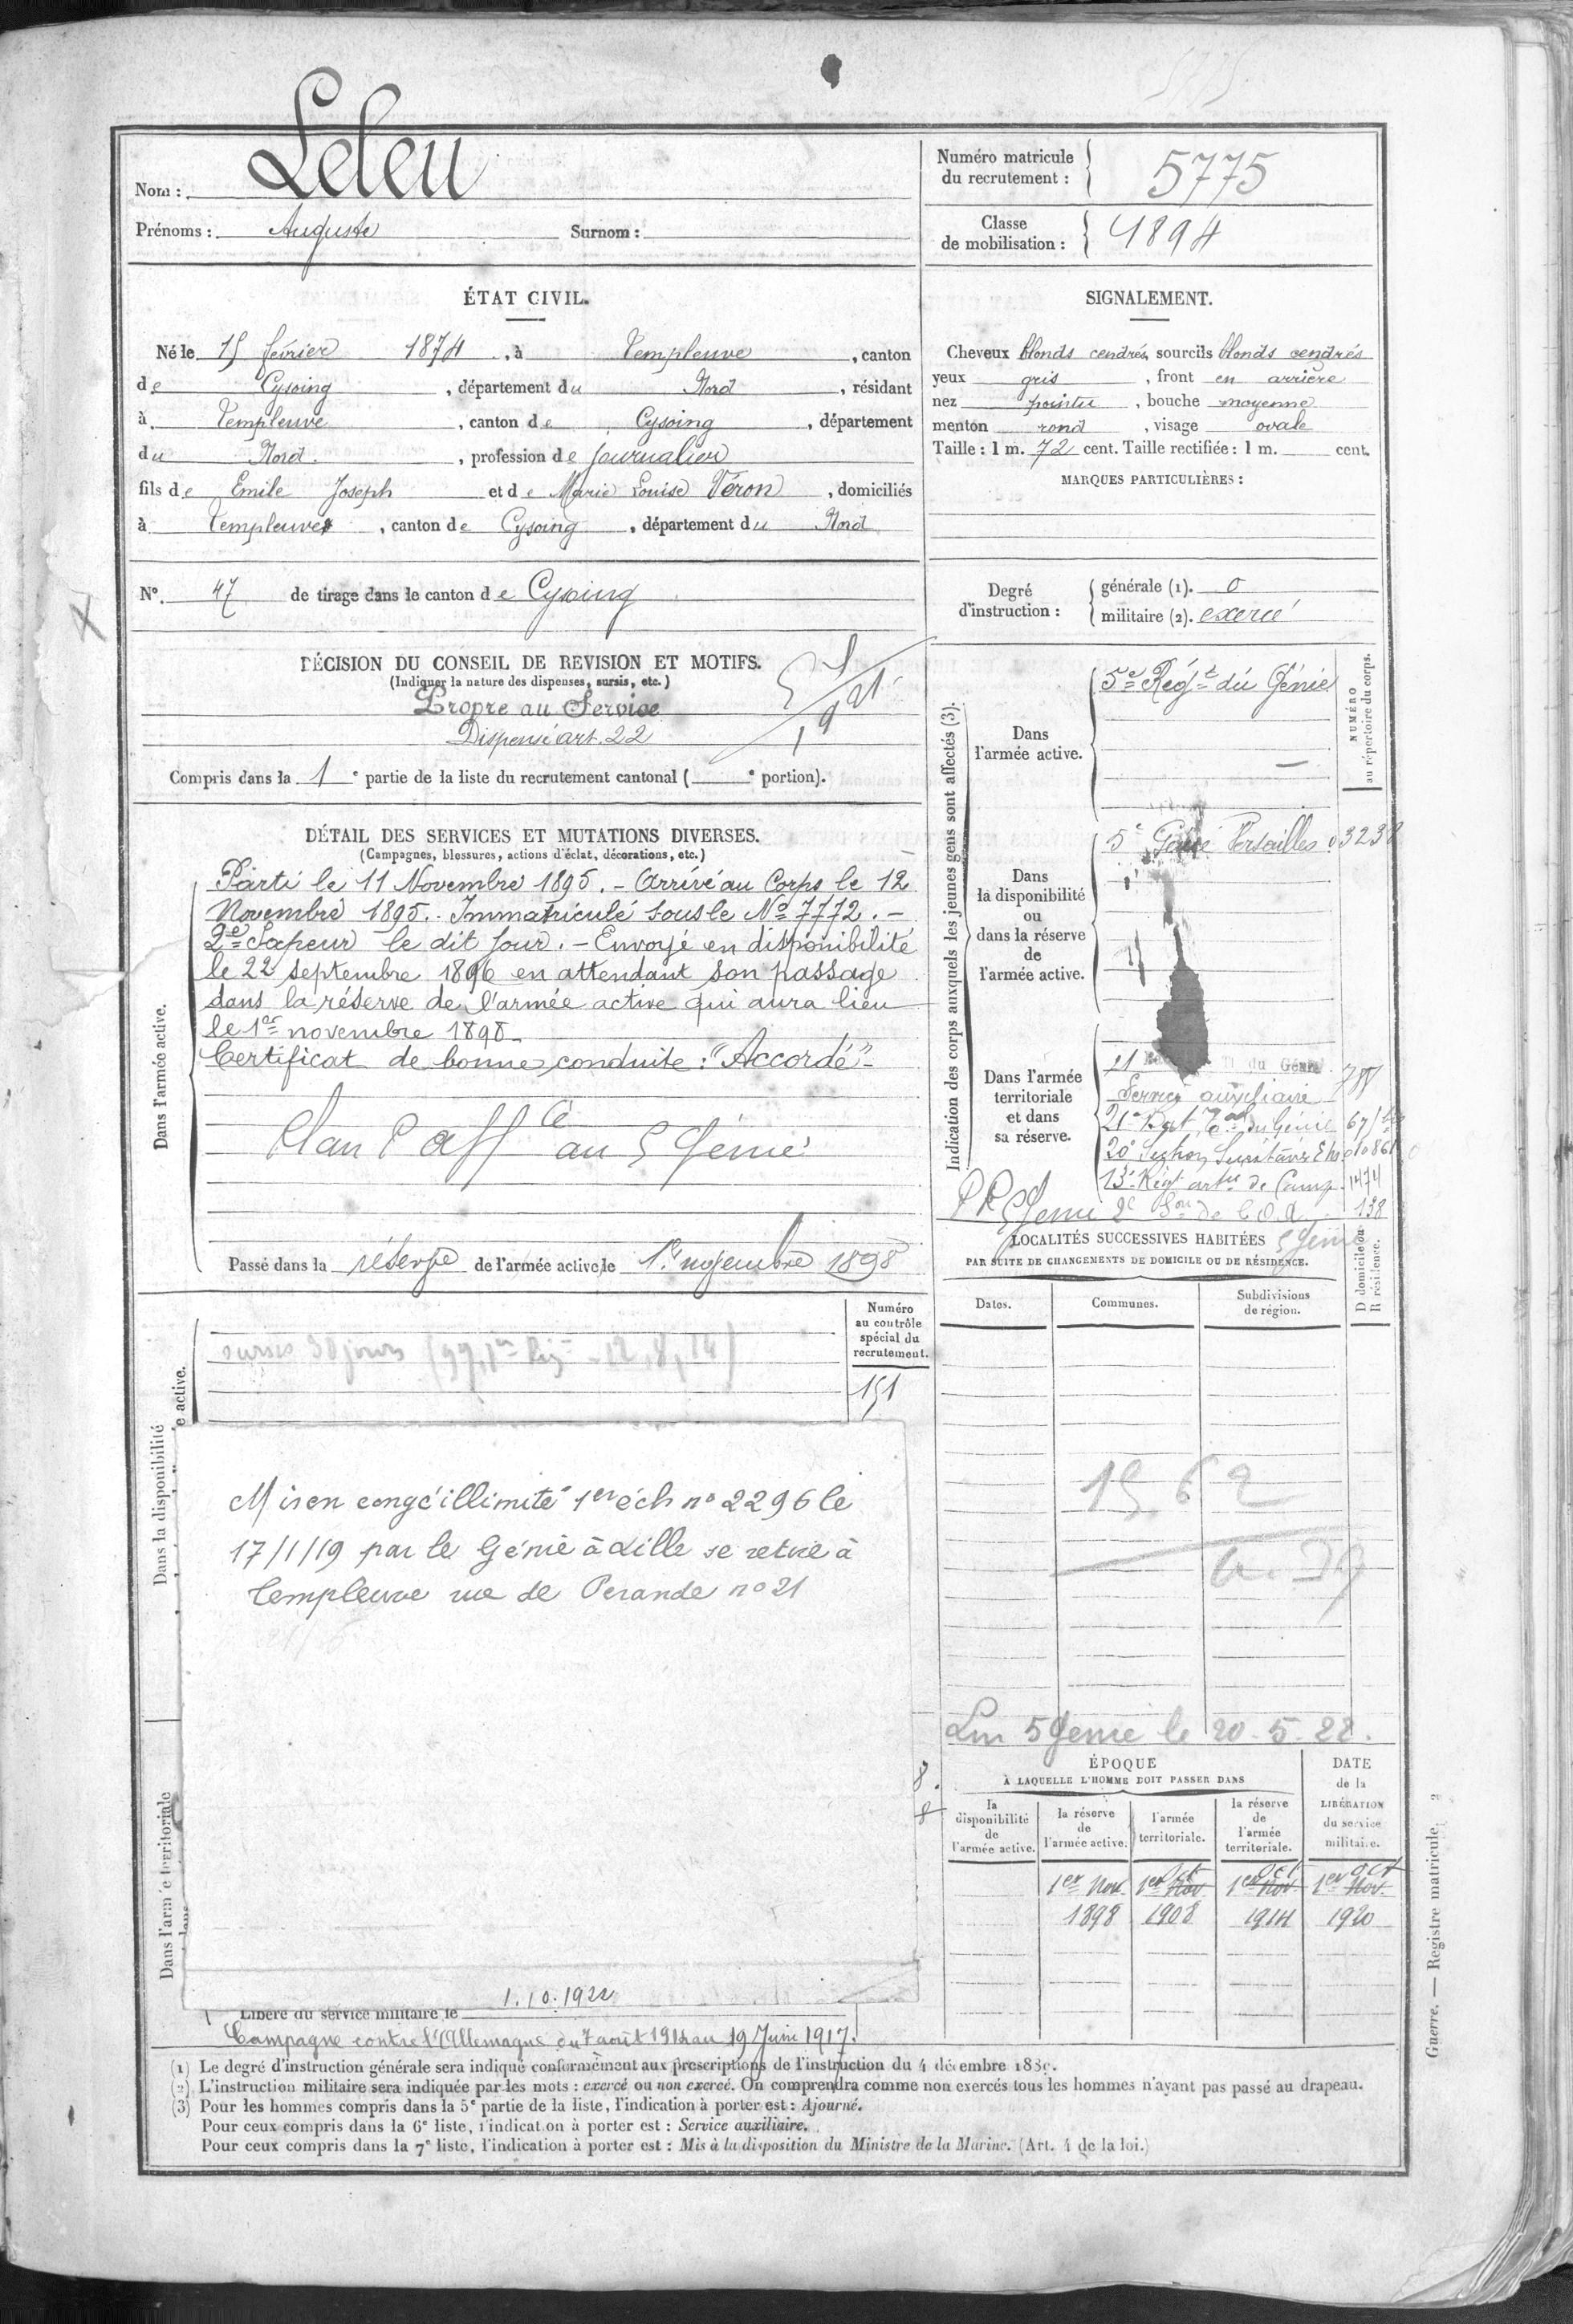 Leleu
Nom :
Prénoms : Auguste Surnom :
Numéro matricule
du recrutement : 5775
Classe
de mobilisation : 1894
ÉTAT CIVIL.
Né le 15 février 1874, à Templeuve, canton
de Cysoing, département du Nord, résidant
à Templeuve, canton de Cysoing, département
du Nord, profession de journalier
fils de Emile Joseph et de Marie Louise Véron, domiciliés
à Templeuve, canton de Cysoing, département du Nord
SIGNALEMENT.
Cheveux blonds cendrés, sourcils blonds cendrés
yeux gris, front en arrière
nez pointu, bouche moyenne
menton rond, visage ovale
Taille : 1 m. 72 cent. Taille rectifiée : 1 m. cent.
MARQUES PARTICULIÈRES :
N° 47 de tirage dans le canton de Cysoing
Degré
d'instruction :
générale (1). 0
militaire (2). exercé
DÉCISION DU CONSEIL DE REVISION ET MOTIFS.
(Indiquer la nature des dispenses, sursis, etc.)
Propre au Service
Dispensé art. 22
Compris dans la 1e partie de la liste du recrutement cantonal ( e portion).
DÉTAIL DES SERVICES ET MUTATIONS DIVERSES.
(Campagnes, blessures, actions d'éclat, décorations, etc.)
Dans l'armée active.
Parti le 11 Novembre 1895. - Arrivé au Corps le 12
Novembre 1895. Immatriculé sous le No 7772. -
2e Sapeur le dit jour. - Envoyé en disponibilité
le 22 septembre 1896 en attendant son passage
dans la réserve de l'armée active qui aura lieu
le 1er novembre 1898
Certificat de bonne conduite : "Accordé" -
Plan P aff cé au 5 Génie
Passé dans la réserve de l'armée active le 1er novembre 1898
Numéro
au contrôle
spécial du
recrutement.
151
sursis 30 jours
Dans la disponibilité
e active.
Mis en congé illimité 1er éch no 2296 le
17/1/19 par le Génie à Lille se retire à
Templeuve rue de Perande no 21
Dans l'armée territoriale
Libéré du service militaire le 1.10.1922
Campagne contre l'Allemagne du 7 août 1914 au 19 Juin 1917.
Indication des corps auxquels les jeunes gens sont affectés (3).
NUMÉRO
au répertoire du corps.
Dans
l'armée active.
5e Régt du Génie
Dans
la disponibilité
ou
dans la réserve
de
l'armée active.
5e Génie Versailles 03238
Dans l'armée
territoriale
et dans
sa réserve.
21 du Génie
Service auxiliaire
21e Bat Tal du Génie
13e Régt artie de Camp. 1474
138
5 Génie
LOCALITÉS SUCCESSIVES HABITÉES
PAR SUITE DE CHANGEMENTS DE DOMICILE OU DE RÉSIDENCE.
Dates. Communes. Subdivisions
de région.
D domicile ou
R résidence.
15 62
5 Genie le 20-5-22.
ÉPOQUE
À LAQUELLE L'HOMME DOIT PASSER DANS
DATE
de la
LIBÉRATION
du service
militaire.
la
disponibilité
de
l'armée active.
la réserve
de
l'armée active.
l'armée
territoriale.
la réserve
de
l'armée
territoriale.
1er Nov. 1er Nov Oct 1er Nov Oct 1er Nov. oct
1898 1908 1914 1920
(1) Le degré d'instruction générale sera indiqué conformément aux prescriptions de l'instruction du 4 décembre 1889.
(2) L'instruction militaire sera indiquée par les mots : exercé ou non exercé. On comprendra comme non exercés tous les hommes n'ayant pas passé au drapeau.
(3) Pour les hommes compris dans la 5e partie de la liste, l'indication à porter est : Ajourné.
Pour ceux compris dans la 6e liste, l'indication à porter est : Service auxiliaire.
Pour ceux compris dans la 7e liste, l'indication à porter est : Mis à la disposition du Ministre de la Marine. (Art. 4 de la loi.)
Guerre. — Registre matricule